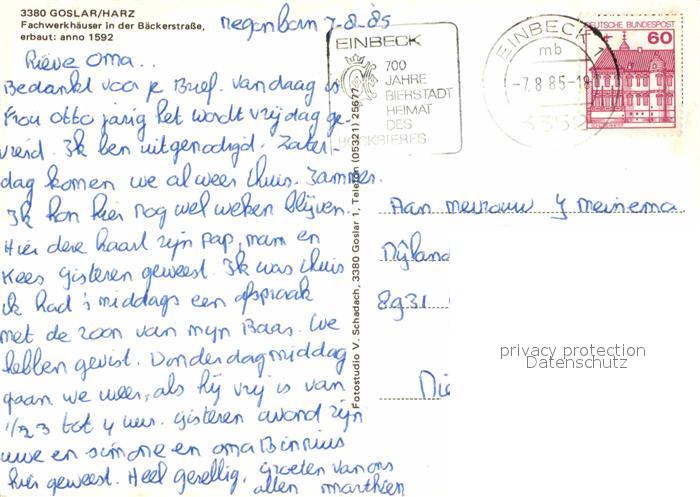 3380 GOSLAR/HARZ
Fachwerkhäuser in der Bäckerstraße,
erbaut: anno 1592
Negenborn 7-8-85
EINBECK
700
JAHRE
BIERSTADT
HEIMAT
DES
BOCKBIERES
EINBECK 1
mb
-7.8 85-18
3352
DEUTSCHE BUNDESPOST
60
Lieve Oma..
Bedankt voor je Brief. vandaag is
Frou Otto jarig het wordt vrijdag ge-
vierd. Ik ben uitgenodigd. Zater-
dag komen we al weer thuis. Jammer.
Ik kon hier nog wel weken blijven.
Hier deze kaart zijn pap, mam en
Kees gisteren geweest. Ik was thuis
ik had 's middags een afspraak
met de zoon van mijn Baas. We
hebben gevist. Donderdagmiddag
gaan we weer, als hij vrij is van
1/2 3 tot 4 uur. Gisteren avond zijn
uwe en simone en oma Binnius
hier geweest. Heel gezellig. Groeten van ons
allen marthien
Fotostudio V. Schadach, 3380 Goslar 1, Telefon (05321) 25677
Aan mevrouw Y Meinema
Nijland
8931
Nie
privacy protection
Datenschutz